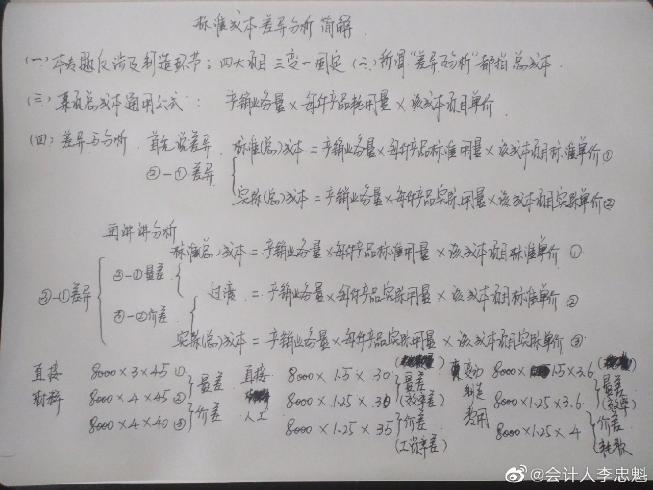 标准成本差异分析 简解
(一)本专题仅涉及制造环节；四大项目 三变一固定 (二)所谓"差异与分析"都指总成本.
(三)某项总成本通用公式： 产销业务量×每件产品耗用量×该成本项目单价
(四)差异与分析. 首先说差异 标准(总)成本=产销业务量×每件产品标准用量×该成本项目标准单价①
②-①差异
实际(总)成本=产销业务量×每件产品实际用量×该成本项目实际单价②
再讲讲分析
标准(总)成本=产销业务量×每件产品标准用量×该成本项目标准单价 ①
③-①差异 ②-①量差 过渡 =产销业务量×每件产品实际用量×该成本项目标准单价 ②
③-②价差
实际(总)成本=产销业务量×每件产品实际用量×该成本项目实际单价③
直接 8000×3×45① 直接 8000×1.5×30 变动 8000×1.5×3.6
材料 8000×4×45② 量差 人工 8000×1.25×30 量差(效率差) 制造 8000×1.25×3.6 量差(效率)
8000×4×40③ 价差 8000×1.25×35 价差(工资率差) 费用 8000×1.25×4 价差(耗费)
@会计人李忠魁